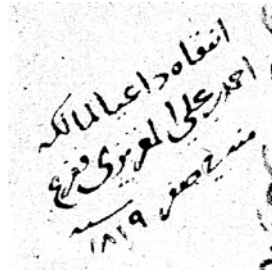 انتقاه داعيا لمالكه
احمد بن علي المقريزي وفرغ
منه في صفر سنه ٨١٩